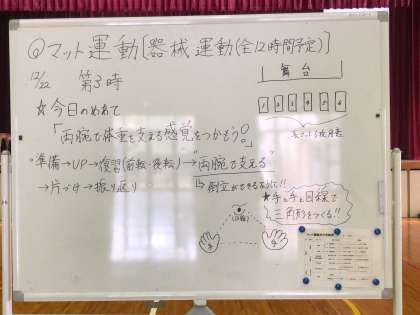 ◎マット運動〔器械運動(全12時間予定)〕
12/22 第3時
舞台
1 2 3 4 5 6
☆今日のめあて
「両腕で体重を支える感覚をつかもう。」
準備→UP→復習(前転・後転)→"両腕で支える"
→片づけ→振り返り
倒立ができるように!!
☆手と手と目線で
三角形をつくる!!
(目線)
手 手